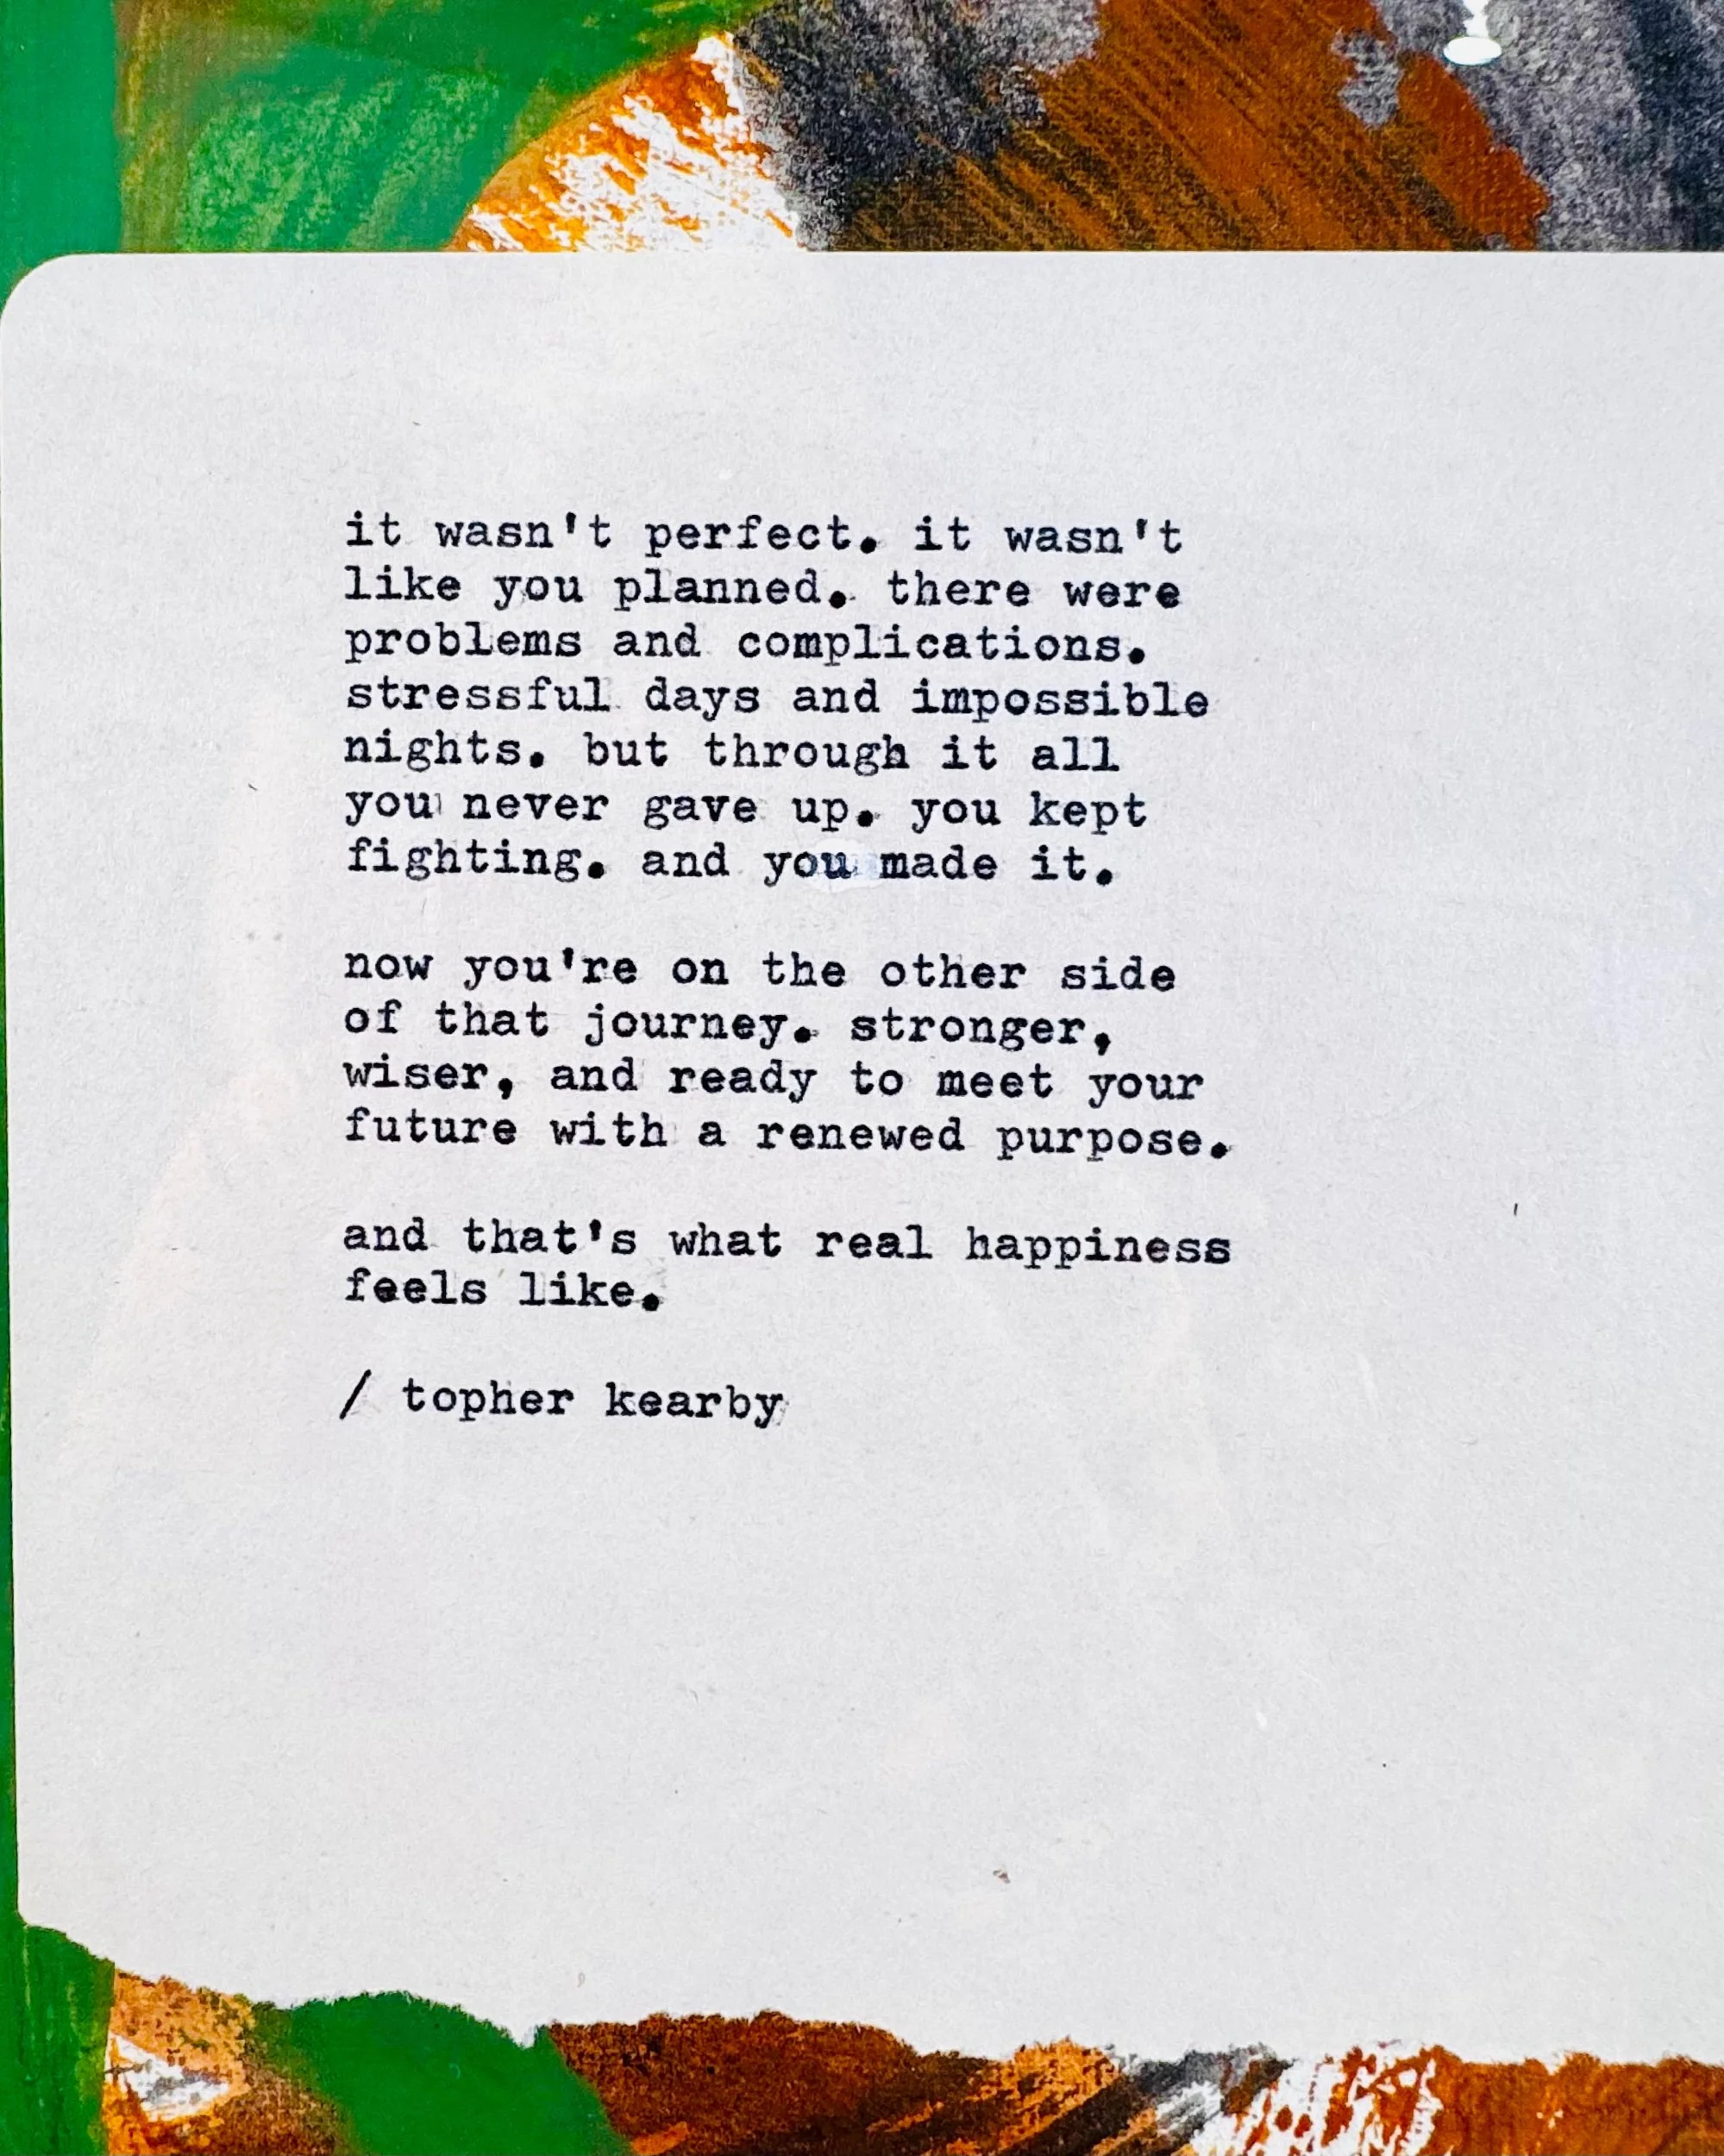 it wasn't perfect. it wasn't
like you planned. there were
problems and complications.
stressful days and impossible
nights. but through it all
you never gave up. you kept
fighting. and you made it.
now you're on the other side
of that journey. stronger,
wiser, and ready to meet your
future with a renewed purpose.
and that's what real happiness
feels like.
/ topher kearby